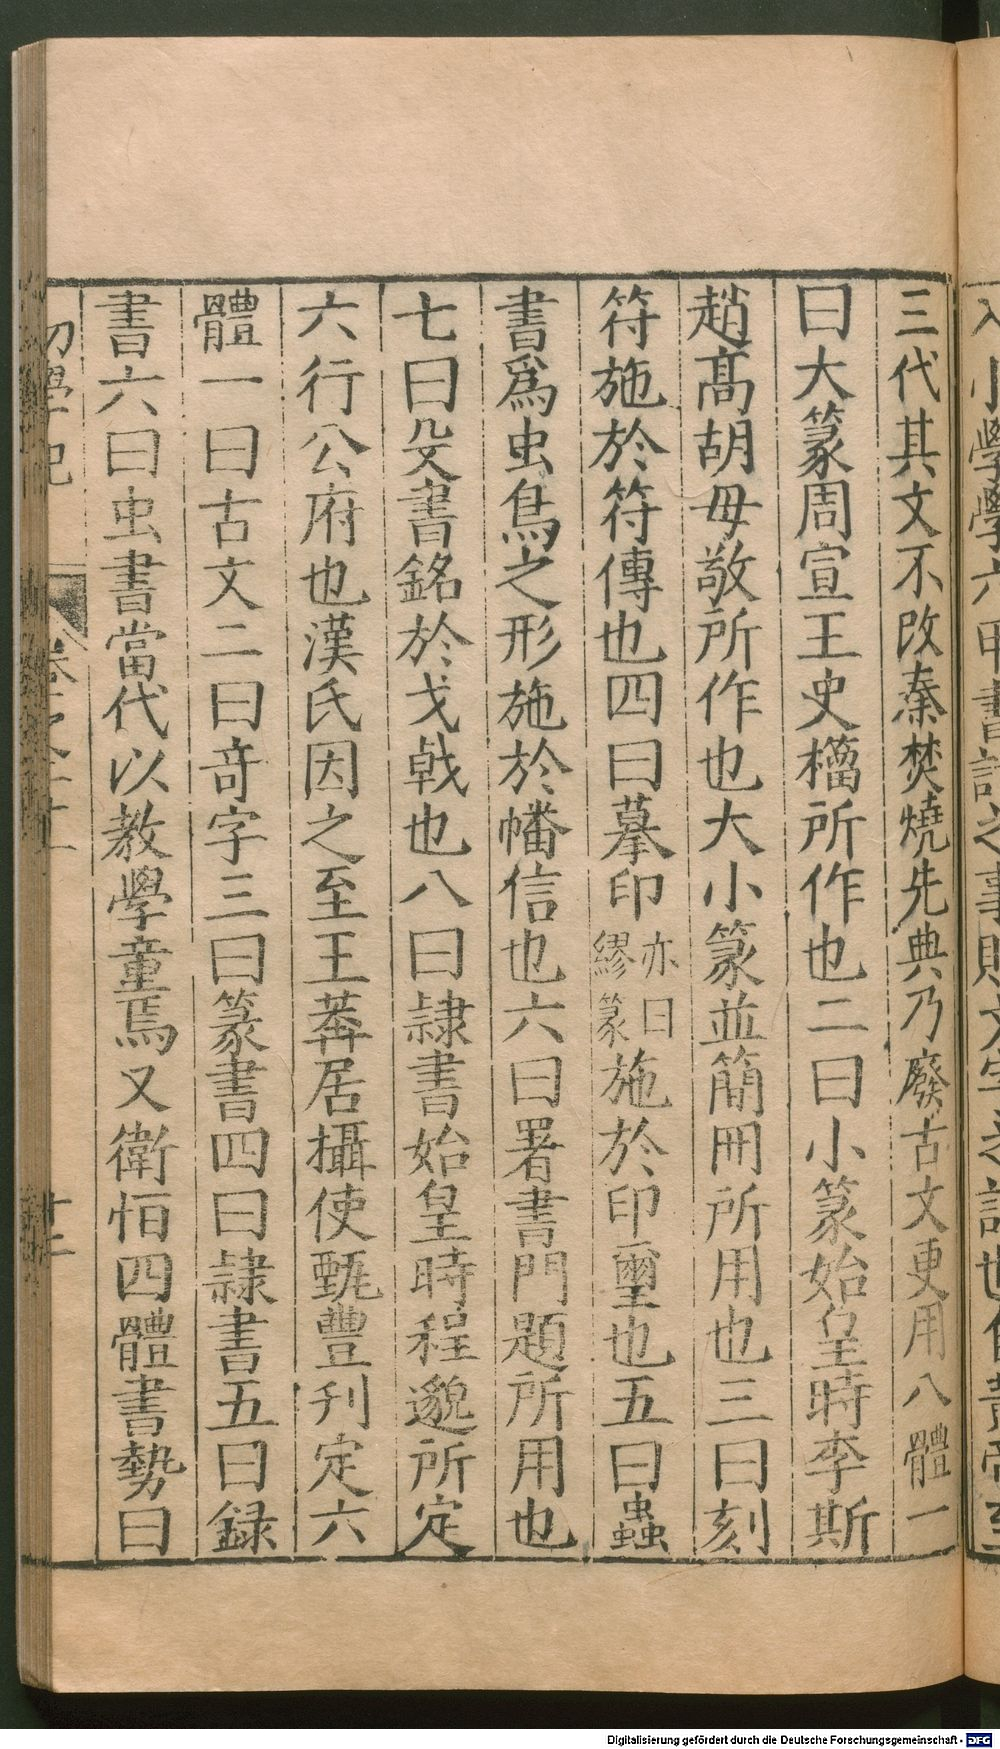 三代其文不改秦焚燒先典乃廢古文更用八體一
曰大篆周宣王史籒所作也二曰小篆始皇時李斯
趙髙胡毋敬所作也大小篆並簡冊所用也三曰刻
符施於符傳也四曰摹印亦曰繆篆施於印璽也五曰蟲
書爲虫鳥之形施於幡信也六曰署書門題所用也
七曰殳書銘於戈戟也八曰隷書始皇時程邈所定
六行公府也漢氏因之至王莾居攝使甄豐刋定六
體一曰古文二曰竒字三曰篆書四曰隷書五曰録
書六曰虫書當代以教學童焉又衛恒四體書勢曰
Digitalisierung gefördert durch die Deutsche Forschungsgemeinschaft - DFG